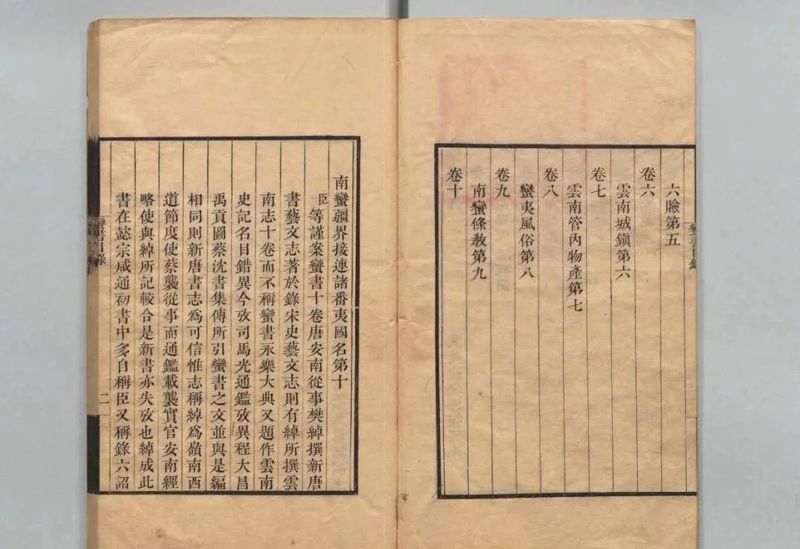 六賧第五
卷六
雲南城鎭第六
卷七
雲南管內物產第七
卷八
蠻夷風俗第八
卷九
南蠻條敎第九
卷十
蠻書目錄
南蠻疆界接連諸番夷國名第十
臣等謹案蠻書十卷唐安南從事樊綽撰新唐
書藝文志著於錄宋史藝文志則有綽所撰雲
南志十卷而不稱蠻書永樂大典又題作雲南
史記名目錯異今攷司馬光通鑑攷異程大昌
禹貢圖蔡沈書集傳所引蠻書之文並與是編
相同則新唐書志爲可信惟志稱綽爲嶺南西
道節度使蔡襲從事而通鑑載襲實官安南經
略使與綽所記較合是新書亦失攷也綽成此
書在懿宗咸通初書中多自稱臣又稱錄六詔
蠻書目錄
二